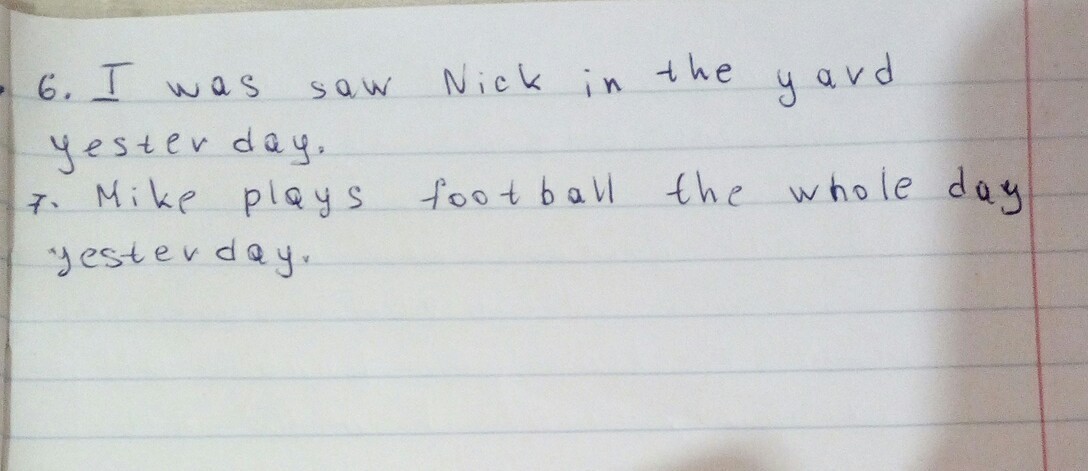 6. I was saw Nick in the yard
yesterday.
7. Mike plays football the whole day
yesterday.